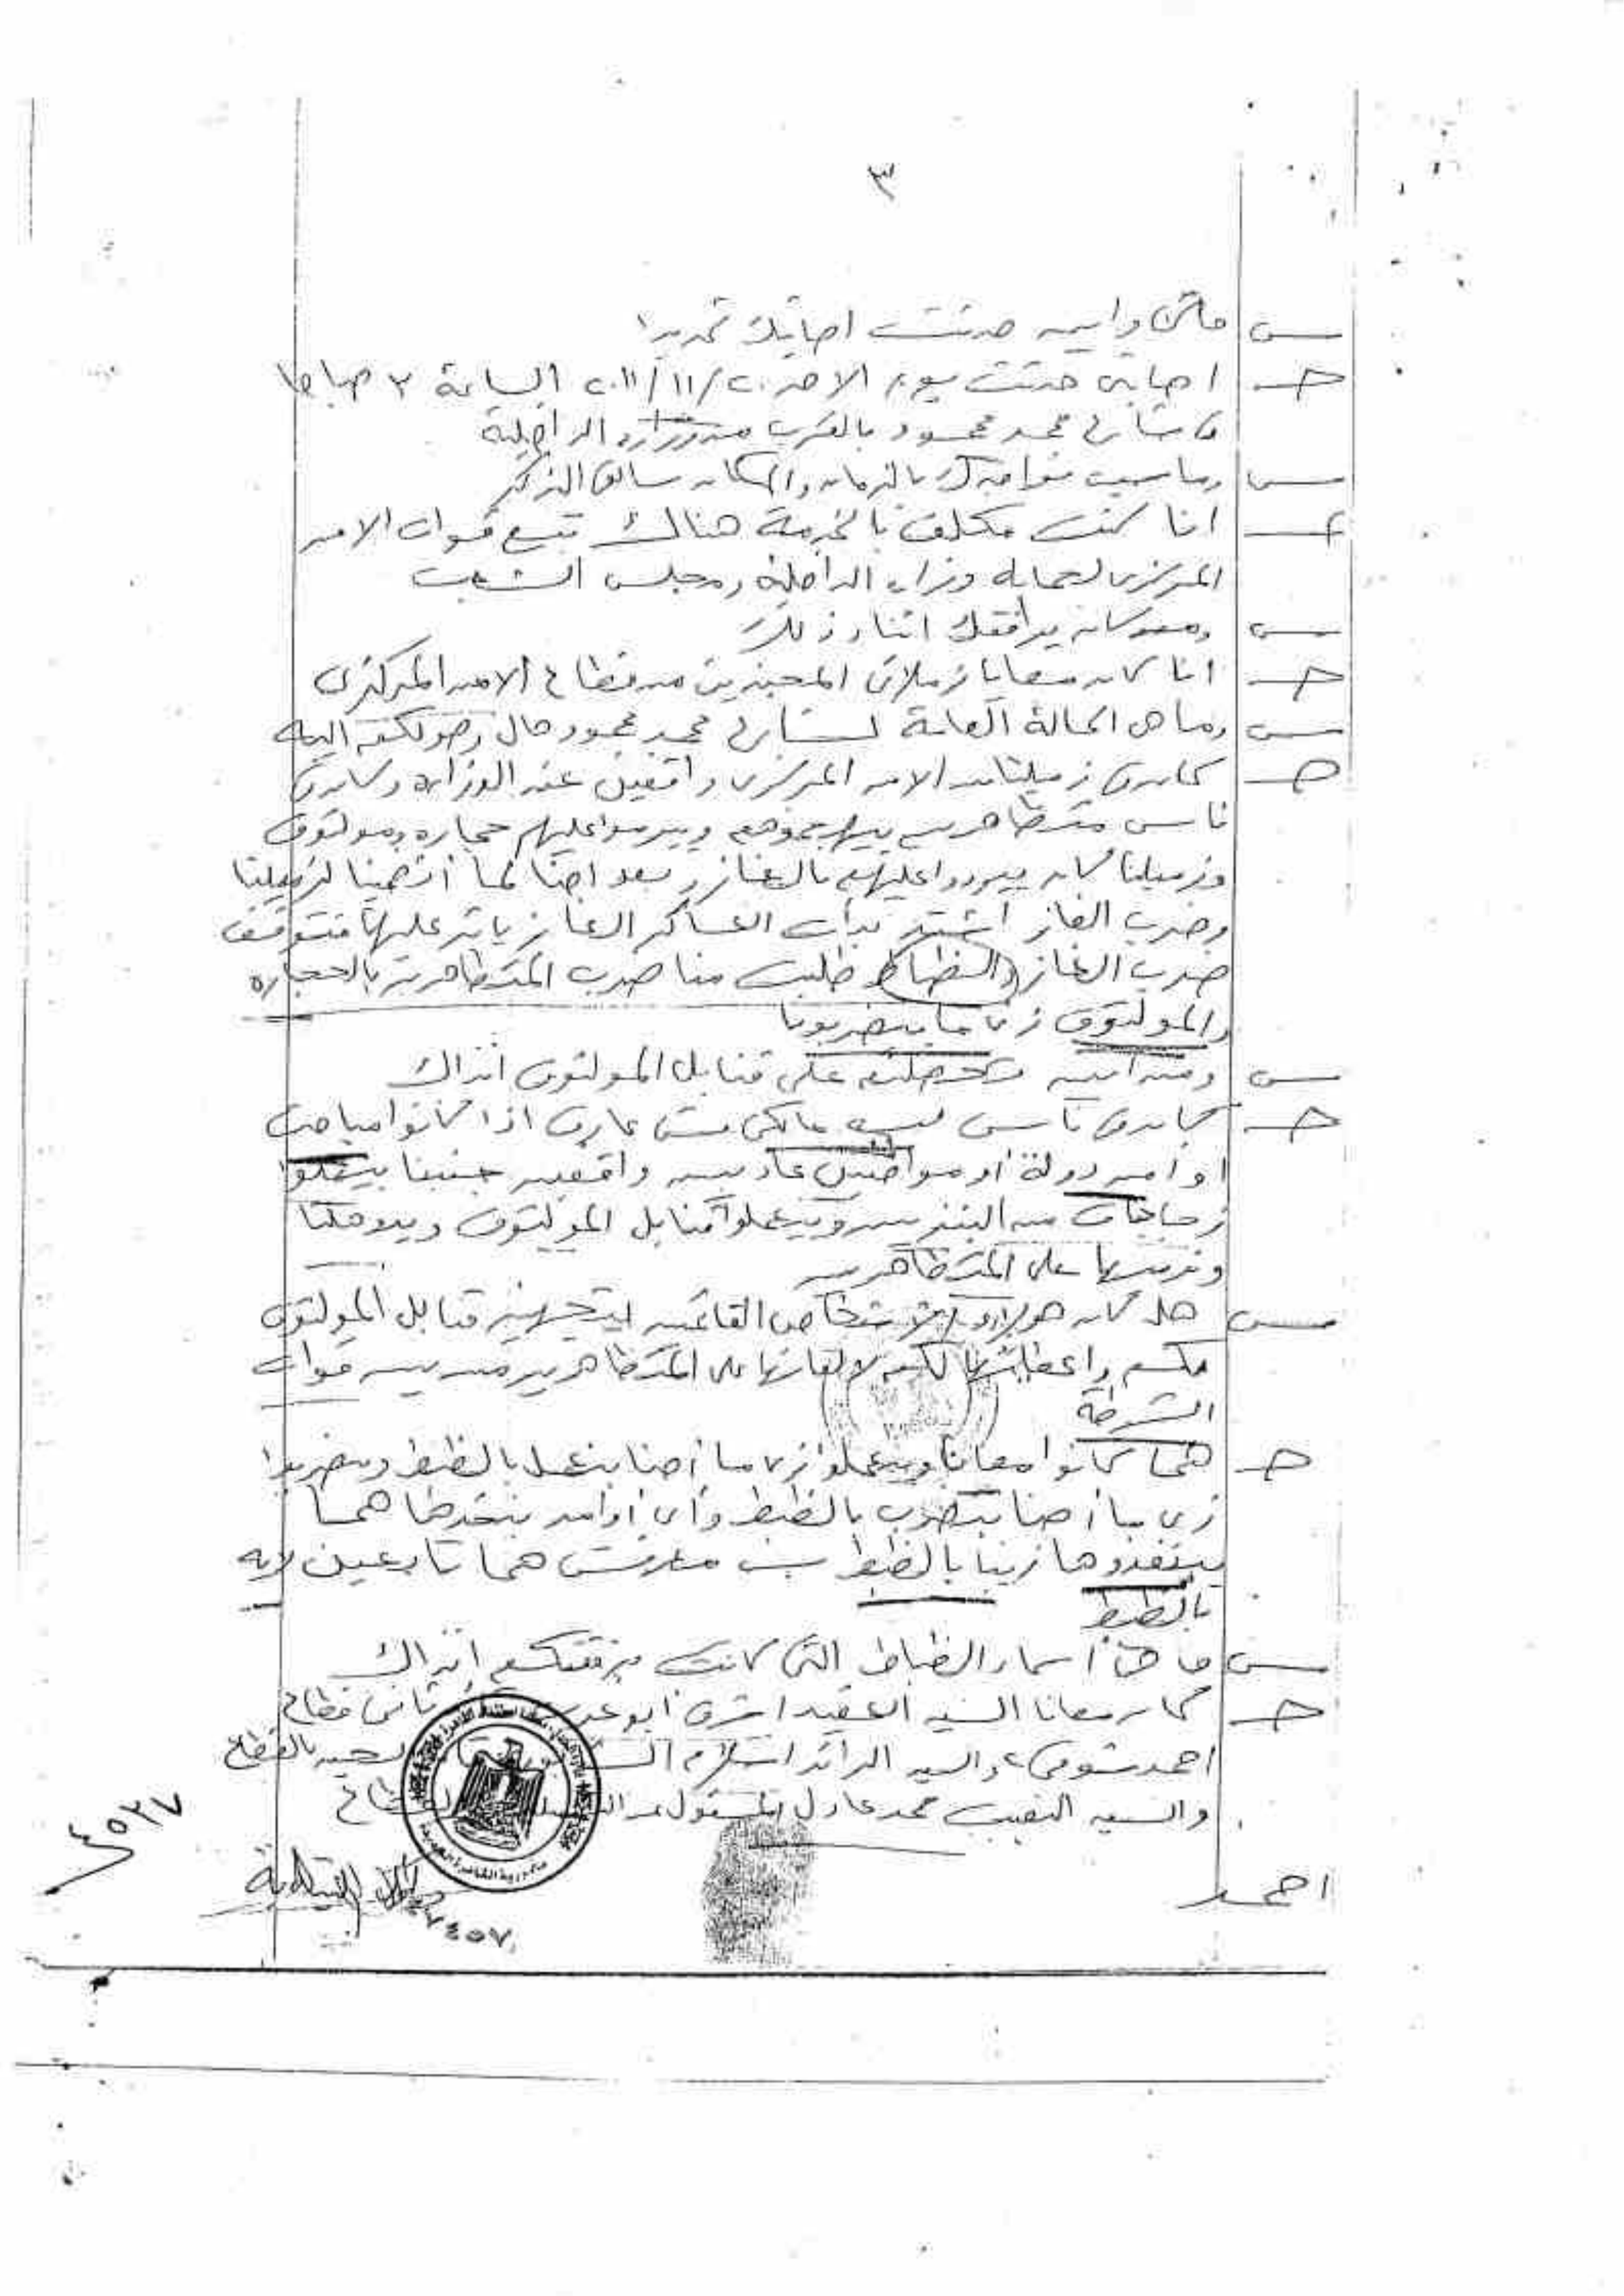 ٣
س متى وأين حدثت اصابتك تحديدا
ج اصابتى حدثت يوم الاحد ٢٠/١١/٢٠١١ الساعة ٣ صباحا
فى شارع محمد محمود بالقرب من وزارة الداخلية
س وما سبب تواجدك بالزمان والمكان سالفى الذكر
ج انا كنت مكلف بالخدمة هناك تبع قوات الامن
المركزى لحماية وزارة الداخلية ومجلس الشعب
س ومن كان يرافقك اثناء ذلك
ج انا كان معايا زملائى المجندين من قطاع الامن المركزى
س وما هى الحالة العامة لشارع محمد محمود حال وصولكم اليه
ج كان فى زميلنا من الامن المركزى واقفين عند الوزارة وكان فى
ناس متظاهرين بيهاجموهم وبيرموا عليهم حجاره ومولتوف
وزميلنا كان بيردوا عليهم بالغاز وبعد احنا لما انضمينا لزميلنا
وضرب الغاز اشتد بدأت العساكر الغاز ياثر عليها فتوقف
ضرب الغاز والظباط طلبت منا ضرب المتظاهرين بالحجاره
والمولتوف زى ما بيضربونا
س ومن اين تحصلتم على قنابل المولتوف انذاك
ج كان فى ناس لبسه ملكى مش عارف اذا كانوا مباحث
او امن دولة او مواطنين عاديين واقفين جنبنا بيملوا
زجاجات من البنزين وبيعملوا قنابل المولتوف ويدوهلنا
ونرميها على المتظاهرين
س هل كان هؤلاء الاشخاص القائمين بتجهيز قنابل المولتوف
معكم واعطائها لكم لالقائها على المتظاهرين من بين قوات
الشرطة
ج هما كانوا معانا وبيعملوا زى ما أحنا بنعمل بالظبط وبيضربوا
زى ما أحنا بنضرب بالظبط وأى أوامر بنخدها هما
بينفذوها زينا بالظبط بس معرفش هما تابعين لايه
بالظبط
س ما هى أسماء الظباط التى كانت برفقتكم انذاك
ج كان معانا السيد العقيد اشرف ابو قطاع
احمد شوقى والسيد الرائد اسلام بالقطاع
والسيد النقيب محمد عادل المسئول عن
احمد
وكيل النيابة